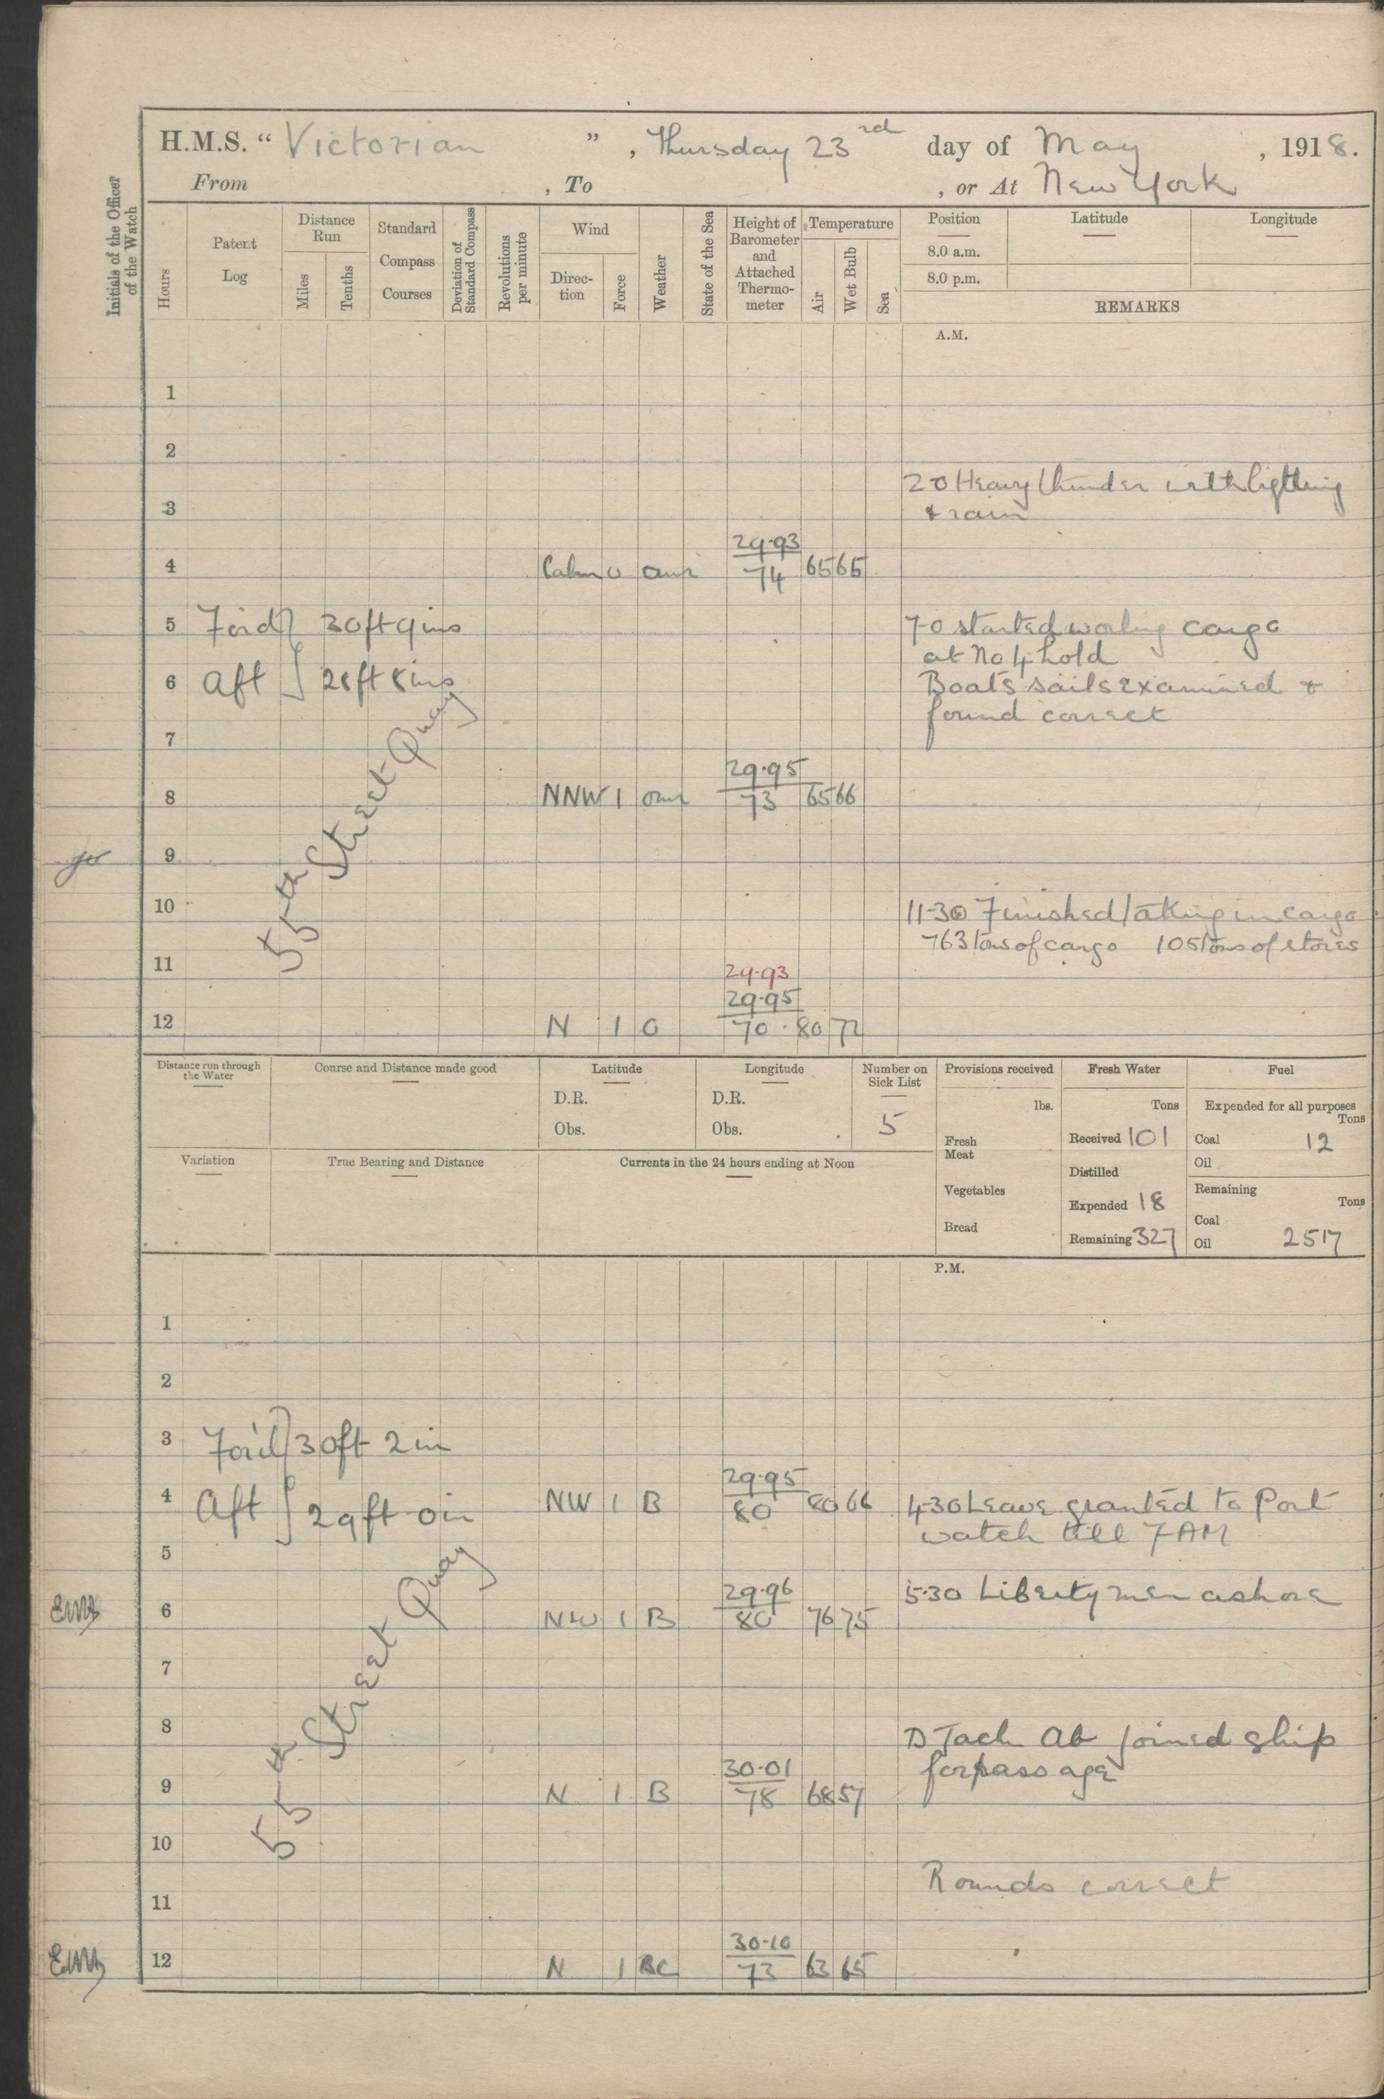 H.M.S. "Victorian", Thursday 23rd day of May, 1918.
From , To , or At New York
Initials of the Officer of the Watch
Hours
Patent Log
Distance Run
Miles
Tenths
Standard Compass Courses
Deviation of Standard Compass
Revolutions per minute
Wind
Direc-tion
Force
Weather
State of the Sea
Height of Barometer and Attached Thermo-meter
Temperature
Air
Wet Bulb
Sea
Position Latitude Longitude
8.0 a.m.
8.0 p.m.
REMARKS
A.M.
1
2
2 0 Heavy thunder with lightning
3
& rain
29.93
4 Calm 0 74 65 65
5 For'd 30ft 9ins 7-0 started working cargo
at No 4 hold
6 Aft 28ft 8ins Boats sails examined &
found correct
7
55th Street Quay
29.95
8 NNW 1 73 65 66
9
10 11-30 Finished taking in cargo
763 tons of cargo 105 tons of stores
11
29.93
29.95
12 N 1 O 70 80 72
Distance run through the Water
Course and Distance made good
Latitude
D.R.
Obs.
Longitude
D.R.
Obs.
Number on Sick List
5
Provisions received
lbs.
Fresh Meat
Vegetables
Bread
Fresh Water
Tons
Received 101
Distilled
Expended 18
Remaining 327
Fuel
Expended for all purposes
Tons
Coal 12
Oil
Remaining
Tons
Coal
Oil 2517
Variation
True Bearing and Distance
Currents in the 24 hours ending at Noon
P.M.
1
2
3 For'd 30ft 2in
29.95
4 Aft 29ft 0in NW 1 B 80 80 66 4-30 Leave granted to Port
watch till 7AM
5
29.96 5.30 Liberty men ashore
6 NW 1 B 80 76 75
55th Street Quay
7
8 D Jack AB joined ship
for passage
30.01
9 N 1 B 78 68 57
10
Rounds correct
11
30.10
12 N 1 BC 73 63 65